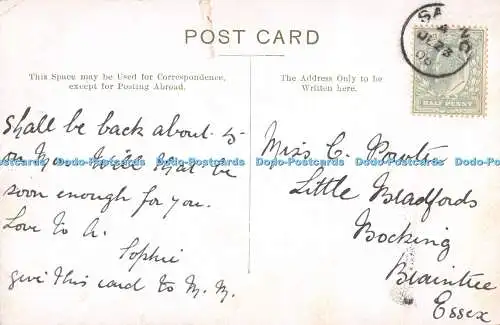 POST CARD
This Space may be Used for Correspondence,
except for Posting Abroad.
The Address Only to be
Written here.
HALF PENNY
Shall be back about 5-
on Mon. Will that be
soon enough for you.
Love to A.
Sophie
give this card to M. M.
Miss C.
Little Bradfords
Bocking
Braintree
Essex
Dodo-Postcards Dodo-Postcards Dodo-Postcards Dodo-Postcards